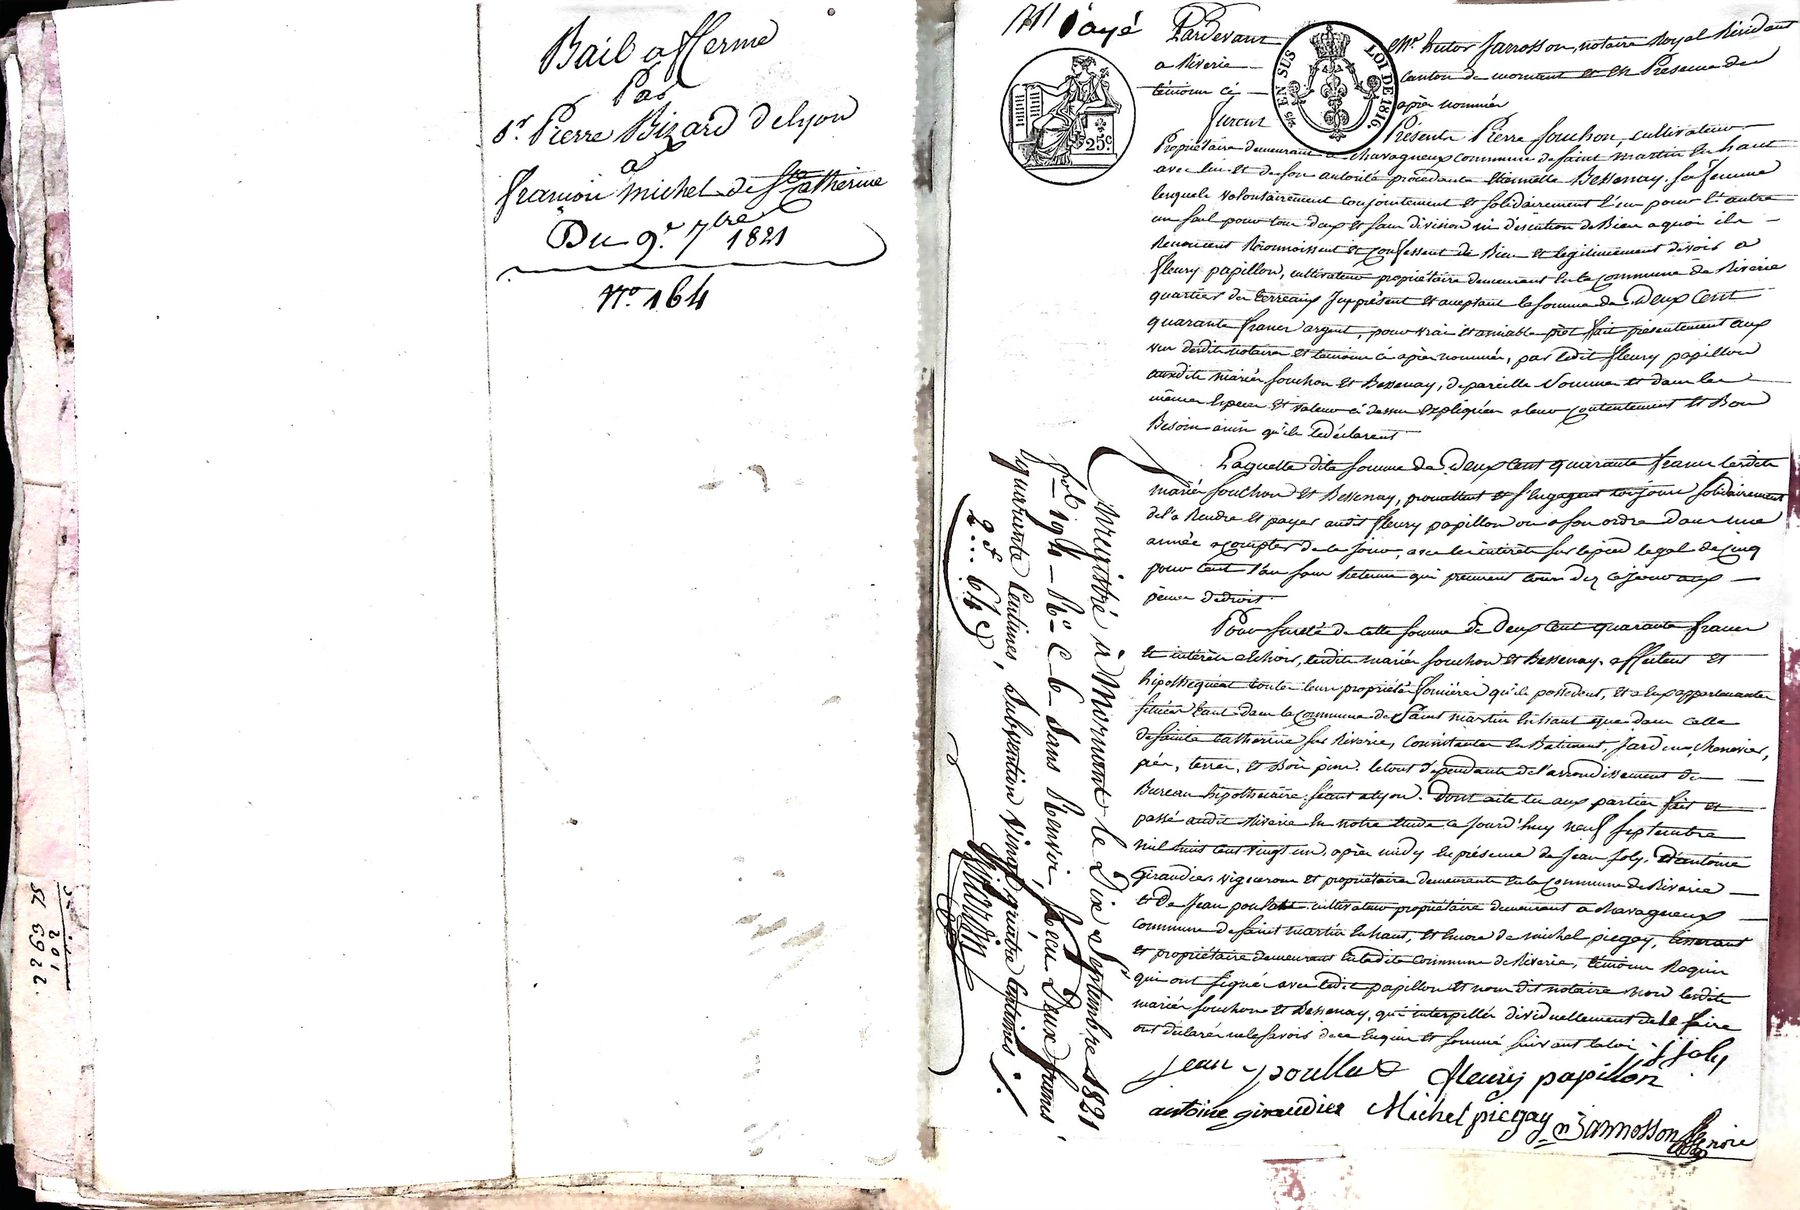 Bail a fferme
Par
Sr Pierre Bizard de lyon
a
francois michel de Ste Catherine
Du 9e 7bre 1821
No 164
201
6922
Payé
Pardevant Me hector Jarrosson, notaire Royal Résidant
a Riverie canton de mornant et en Présence des
témoins ci- après nommés
EN SUS LOI DE 1816.
25c
furent Présents Pierre fouchon, cultivateur
Propriétaire demeurant a chavagneux commune de saint martin en haut
avec lui et de son autorité procédante Etiennette Bessenay, sa femme
lesquels volontairement conjointement et solidairement l'un pour l'autre
un seul pour tous deux et sans division ni discution de Bien a quoi ils
Renoncent Reconnoissent et confessent de Bien et legitimement devoir a
fleury papillon, cultivateur propriétaire demeurant en la commune de Riverie
quartier du terreaux Jcy présent et aceptant la somme de Deux Cent
quarante francs argent, pour vrai et amiable prêt fait présentement aux
vue desdits notaire et temoins ci après nommés, par ledit fleury papillon
auxdits mariés fouchon et Bessenay, de pareille Somme et dans les
mêmes Espèces et valeur ci dessus expliquées a leur contentement et Bon
Besoin ainsi qu'ils le déclarent
Laquelle dite somme de Deux Cent quarante francs lesdits
mariés fouchon et Bessenay, promettent et s'Engagent toujours solidairement
de la Rendre et payer audit fleury papillon ou a son ordre dans une
année a compter de ce jour, avec les intérêts sur le pied legal de cinq
pour cent l'an sans Retenue qui prennent cours des ce jour aux
peines de droit.
Pour sureté de cette somme de Deux Cent quarante francs
et intérêts a Echoir, lesdits mariés fouchon et Bessenay, affectent et
hipothequent toutes leurs propriétés foncières qu'ils possedent, et a Eux appartenantes
situées tant dans la commune de Saint martin En haut que dans celle
de sainte catherine sur Riverie, consistantes en Batiment, Jardins, chenevier,
prés, terres, et Bois pins. le tout dépendants de l'arrondissement du
Bureau hipothécaire séant a lyon. Dont acte lu aux parties fait et
passé audit Riverie En notre Etude ce jourd'huy neuf septembre
mil huit cent vingt un, après midy En présence de Jean Joly, d'antoine
Giraudier, vigneron et propriétaire demeurants en la commune de Riverie
et De Jean poulat cultivateur propriétaire demeurant a chavagneux
commune de saint martin En haut, et Encore de michel piegay, tisserant
et propriétaire demeurant en ladite commune de Riverie, témoins Requis
qui ont signés avec ledit papillon et nous dit notaire non lesdits
mariés fouchon et Bessenay, qui interpellés dividuellement de le faire
ont déclarés ne le savoir de ce Enquis et sommé suivant la loi
J Joly
jean poullat fleury papillon
antoine giraudier Michel piegay Jarrosson noire
Enregistré à Mornant le Dix Septembre 1821
fol 194 Ro C 6 Sans Renvoi, Reçu Deux francs
quarante Centimes, Subvention Vingt quatre Centimes
2f.. 64c